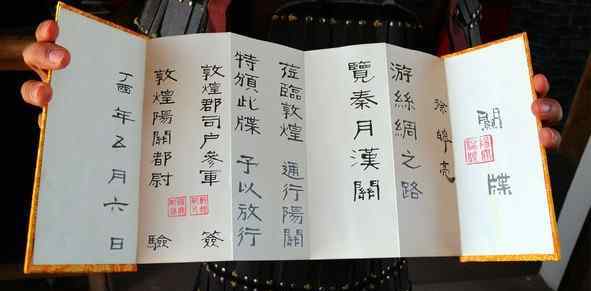 關牒
徐亮
游絲綢之路
覽秦月漢關
蒞臨敦煌 通行陽關
特頒此牒 予以放行
敦煌郡司户參軍 簽
敦煌陽關都尉 驗
丁酉年五月六日